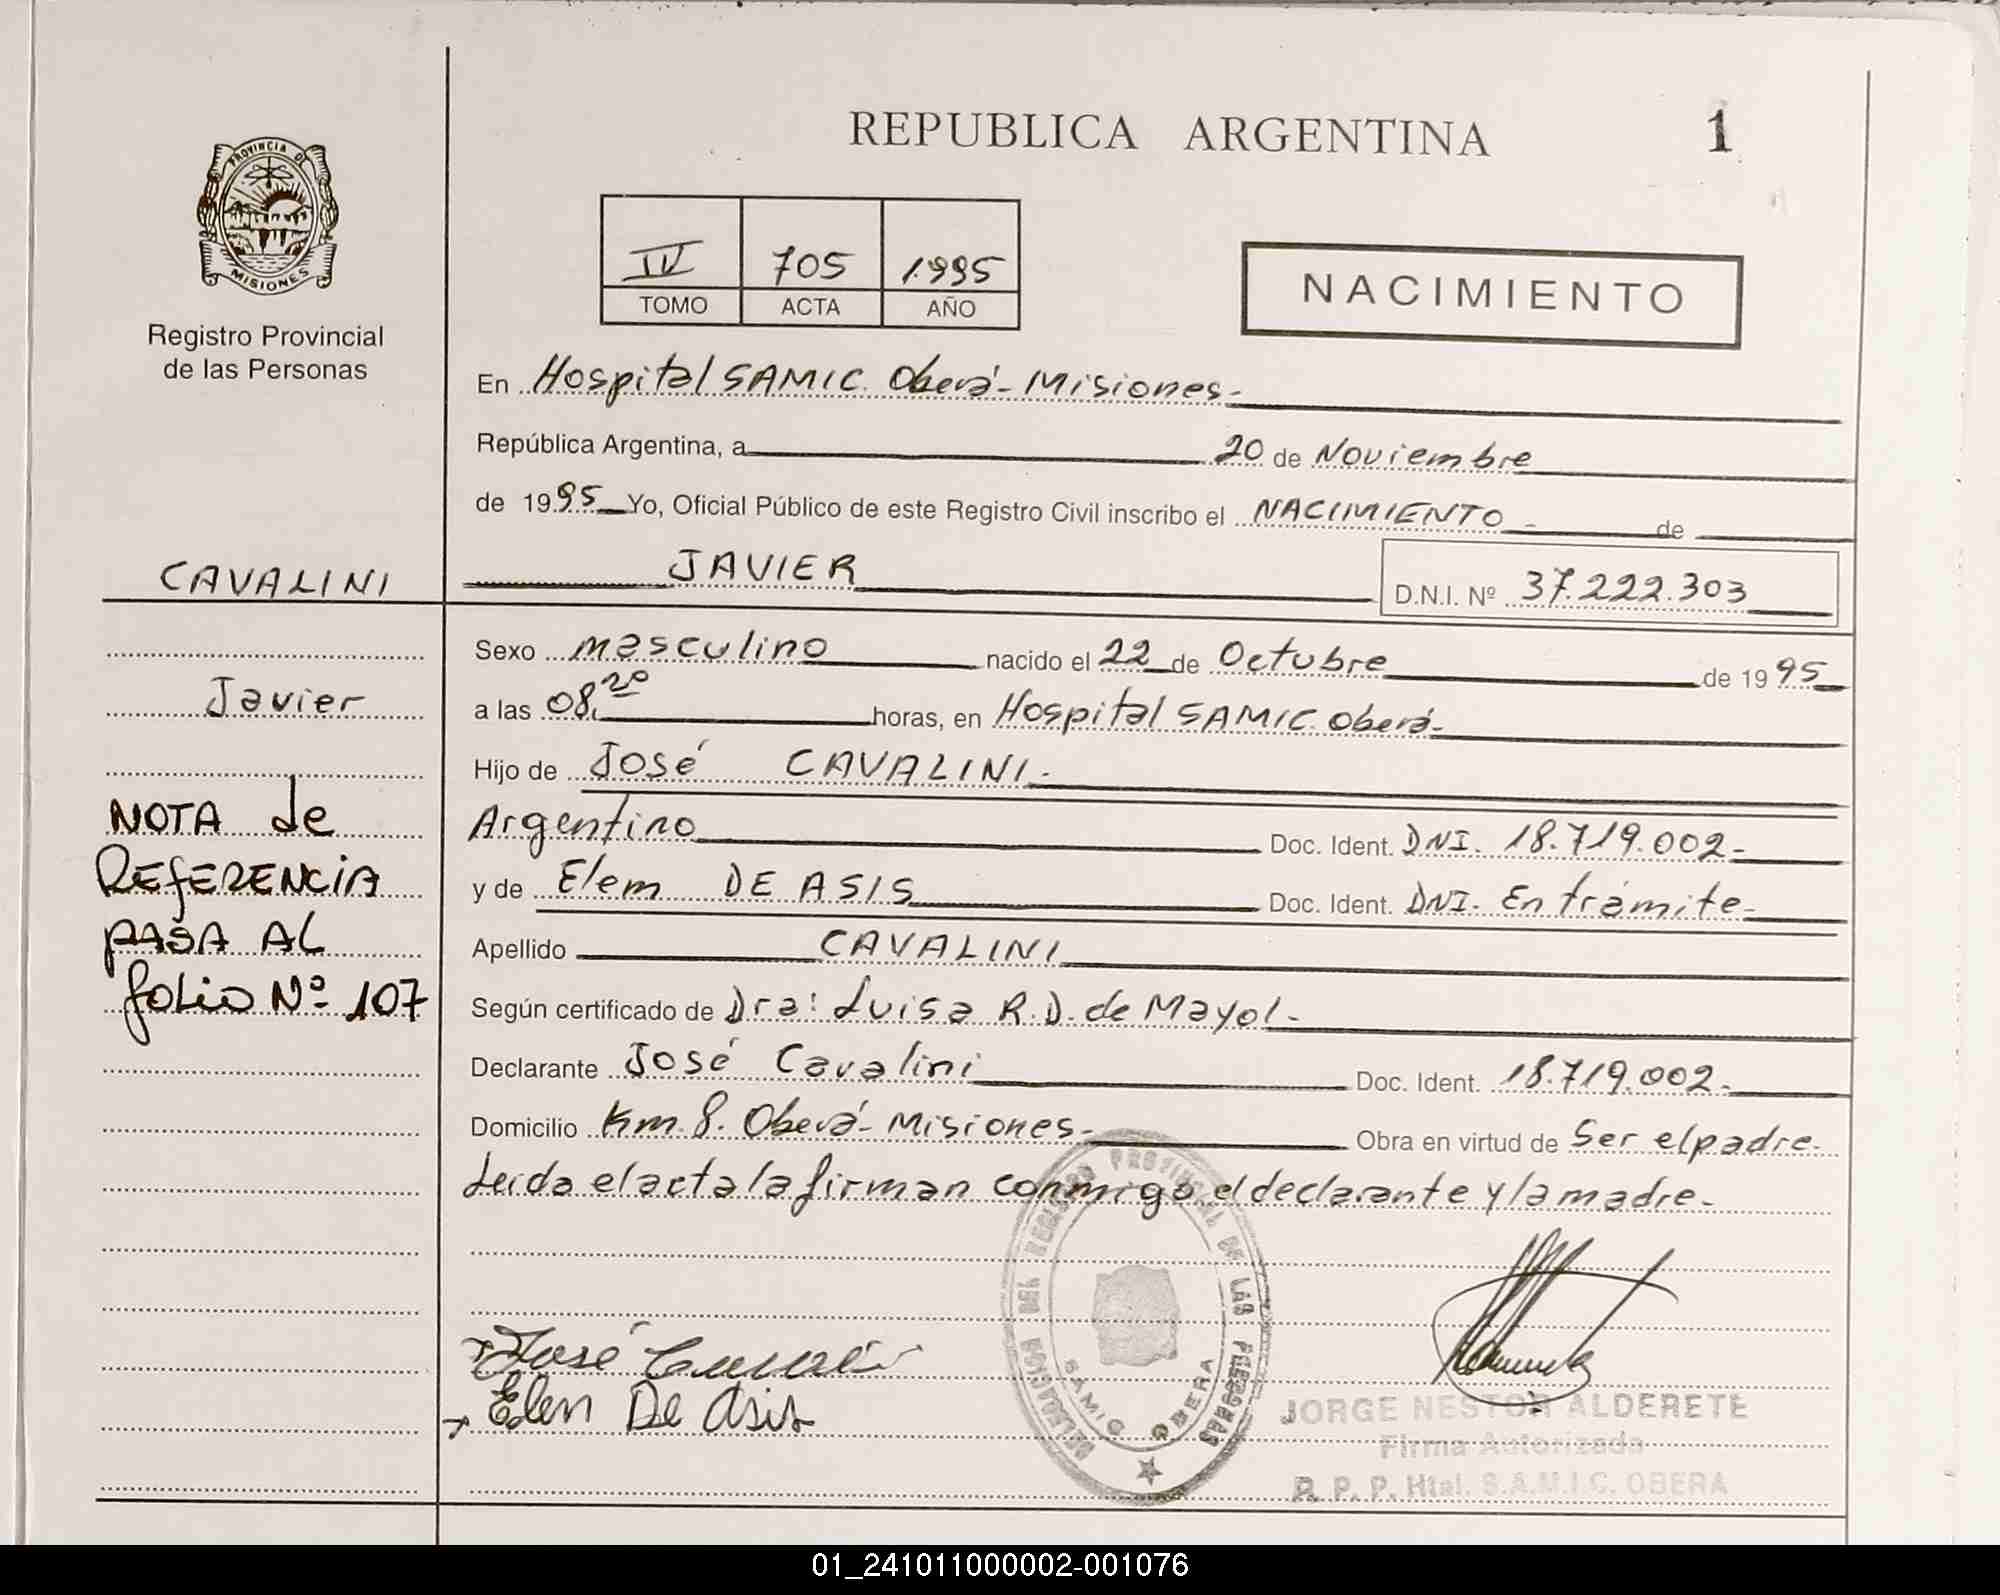 REPUBLICA ARGENTINA
1
PROVINCIA DE
MISIONES
Registro Provincial
de las Personas
IV 705 1995
TOMO ACTA AÑO
NACIMIENTO
En Hospital SAMIC. Oberá - Misiones -
República Argentina, a 20 de Noviembre
de 1995 Yo, Oficial Público de este Registro Civil inscribo el NACIMIENTO - de
CAVALINI
JAVIER
D.N.I. Nº 37.222.303
Sexo masculino nacido el 22 de Octubre de 1995
Javier
a las 08,20 horas, en Hospital SAMIC. Oberá -
Hijo de José CAVALINI -
NOTA de
REFERENCIA
PASA AL
folio Nº 107
Argentino Doc. Ident. DNI. 18.719.002 -
y de Elem DE ASIS Doc. Ident. DNI. En trámite -
Apellido CAVALINI
Según certificado de Dra: Luisa R. D. de Mayol -
Declarante José Cavalini Doc. Ident. 18.719.002 -
Domicilio Km. 8. Oberá - Misiones - Obra en virtud de Ser el padre -
Leida el acta la firman conmigo el declarante y la madre -
DELEGACION DEL REGISTRO PROVINCIAL DE LAS PERSONAS
SAMIC OBERA
José
Elen De Asis
JORGE NESTOR ALDERETE
Firma Autorizada
R. P. P. Htal. S.A.M.I.C. OBERA
01_241011000002-001076